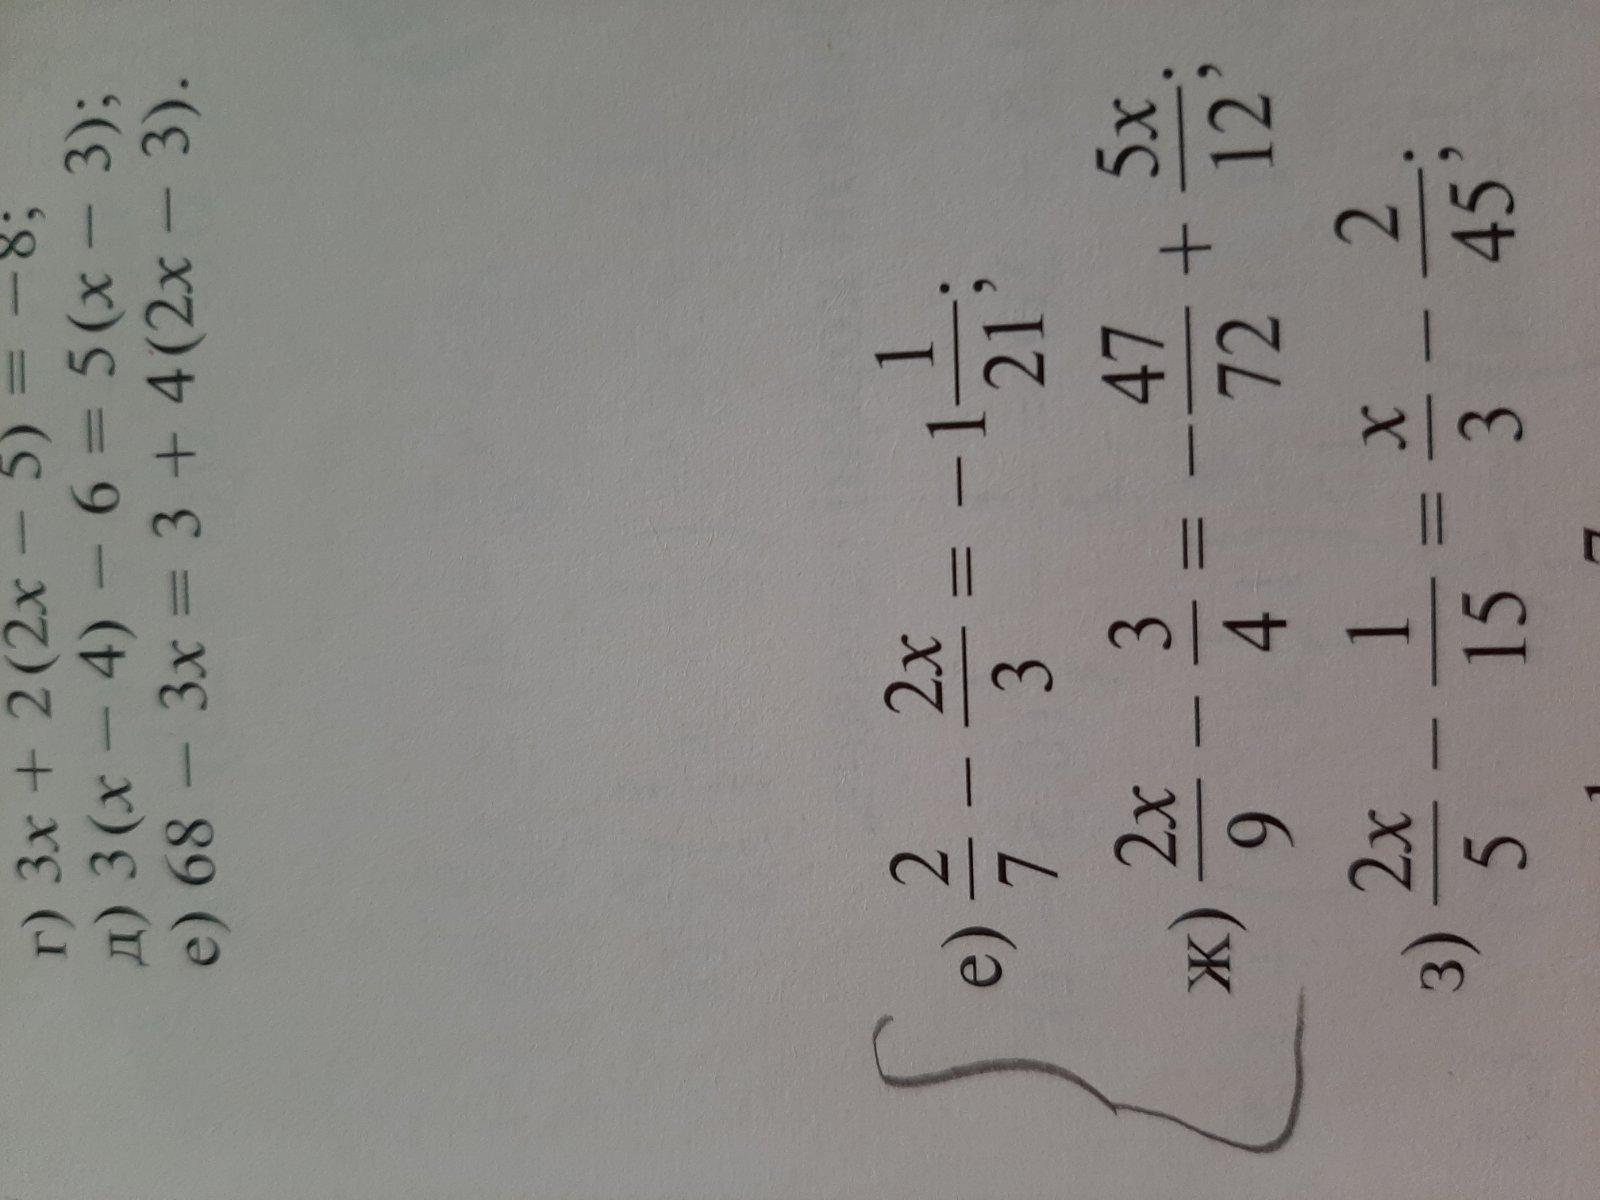 г) 3x + 2(2x − 5) = −8;
д) 3(x − 4) − 6 = 5(x − 3);
е) 68 − 3x = 3 + 4(2x − 3).
е) 2/7 − 2x/3 = −1 1/21;
ж) 2x/9 − 3/4 = −47/72 + 5x/12;
з) 2x/5 − 1/15 = x/3 − 2/45;